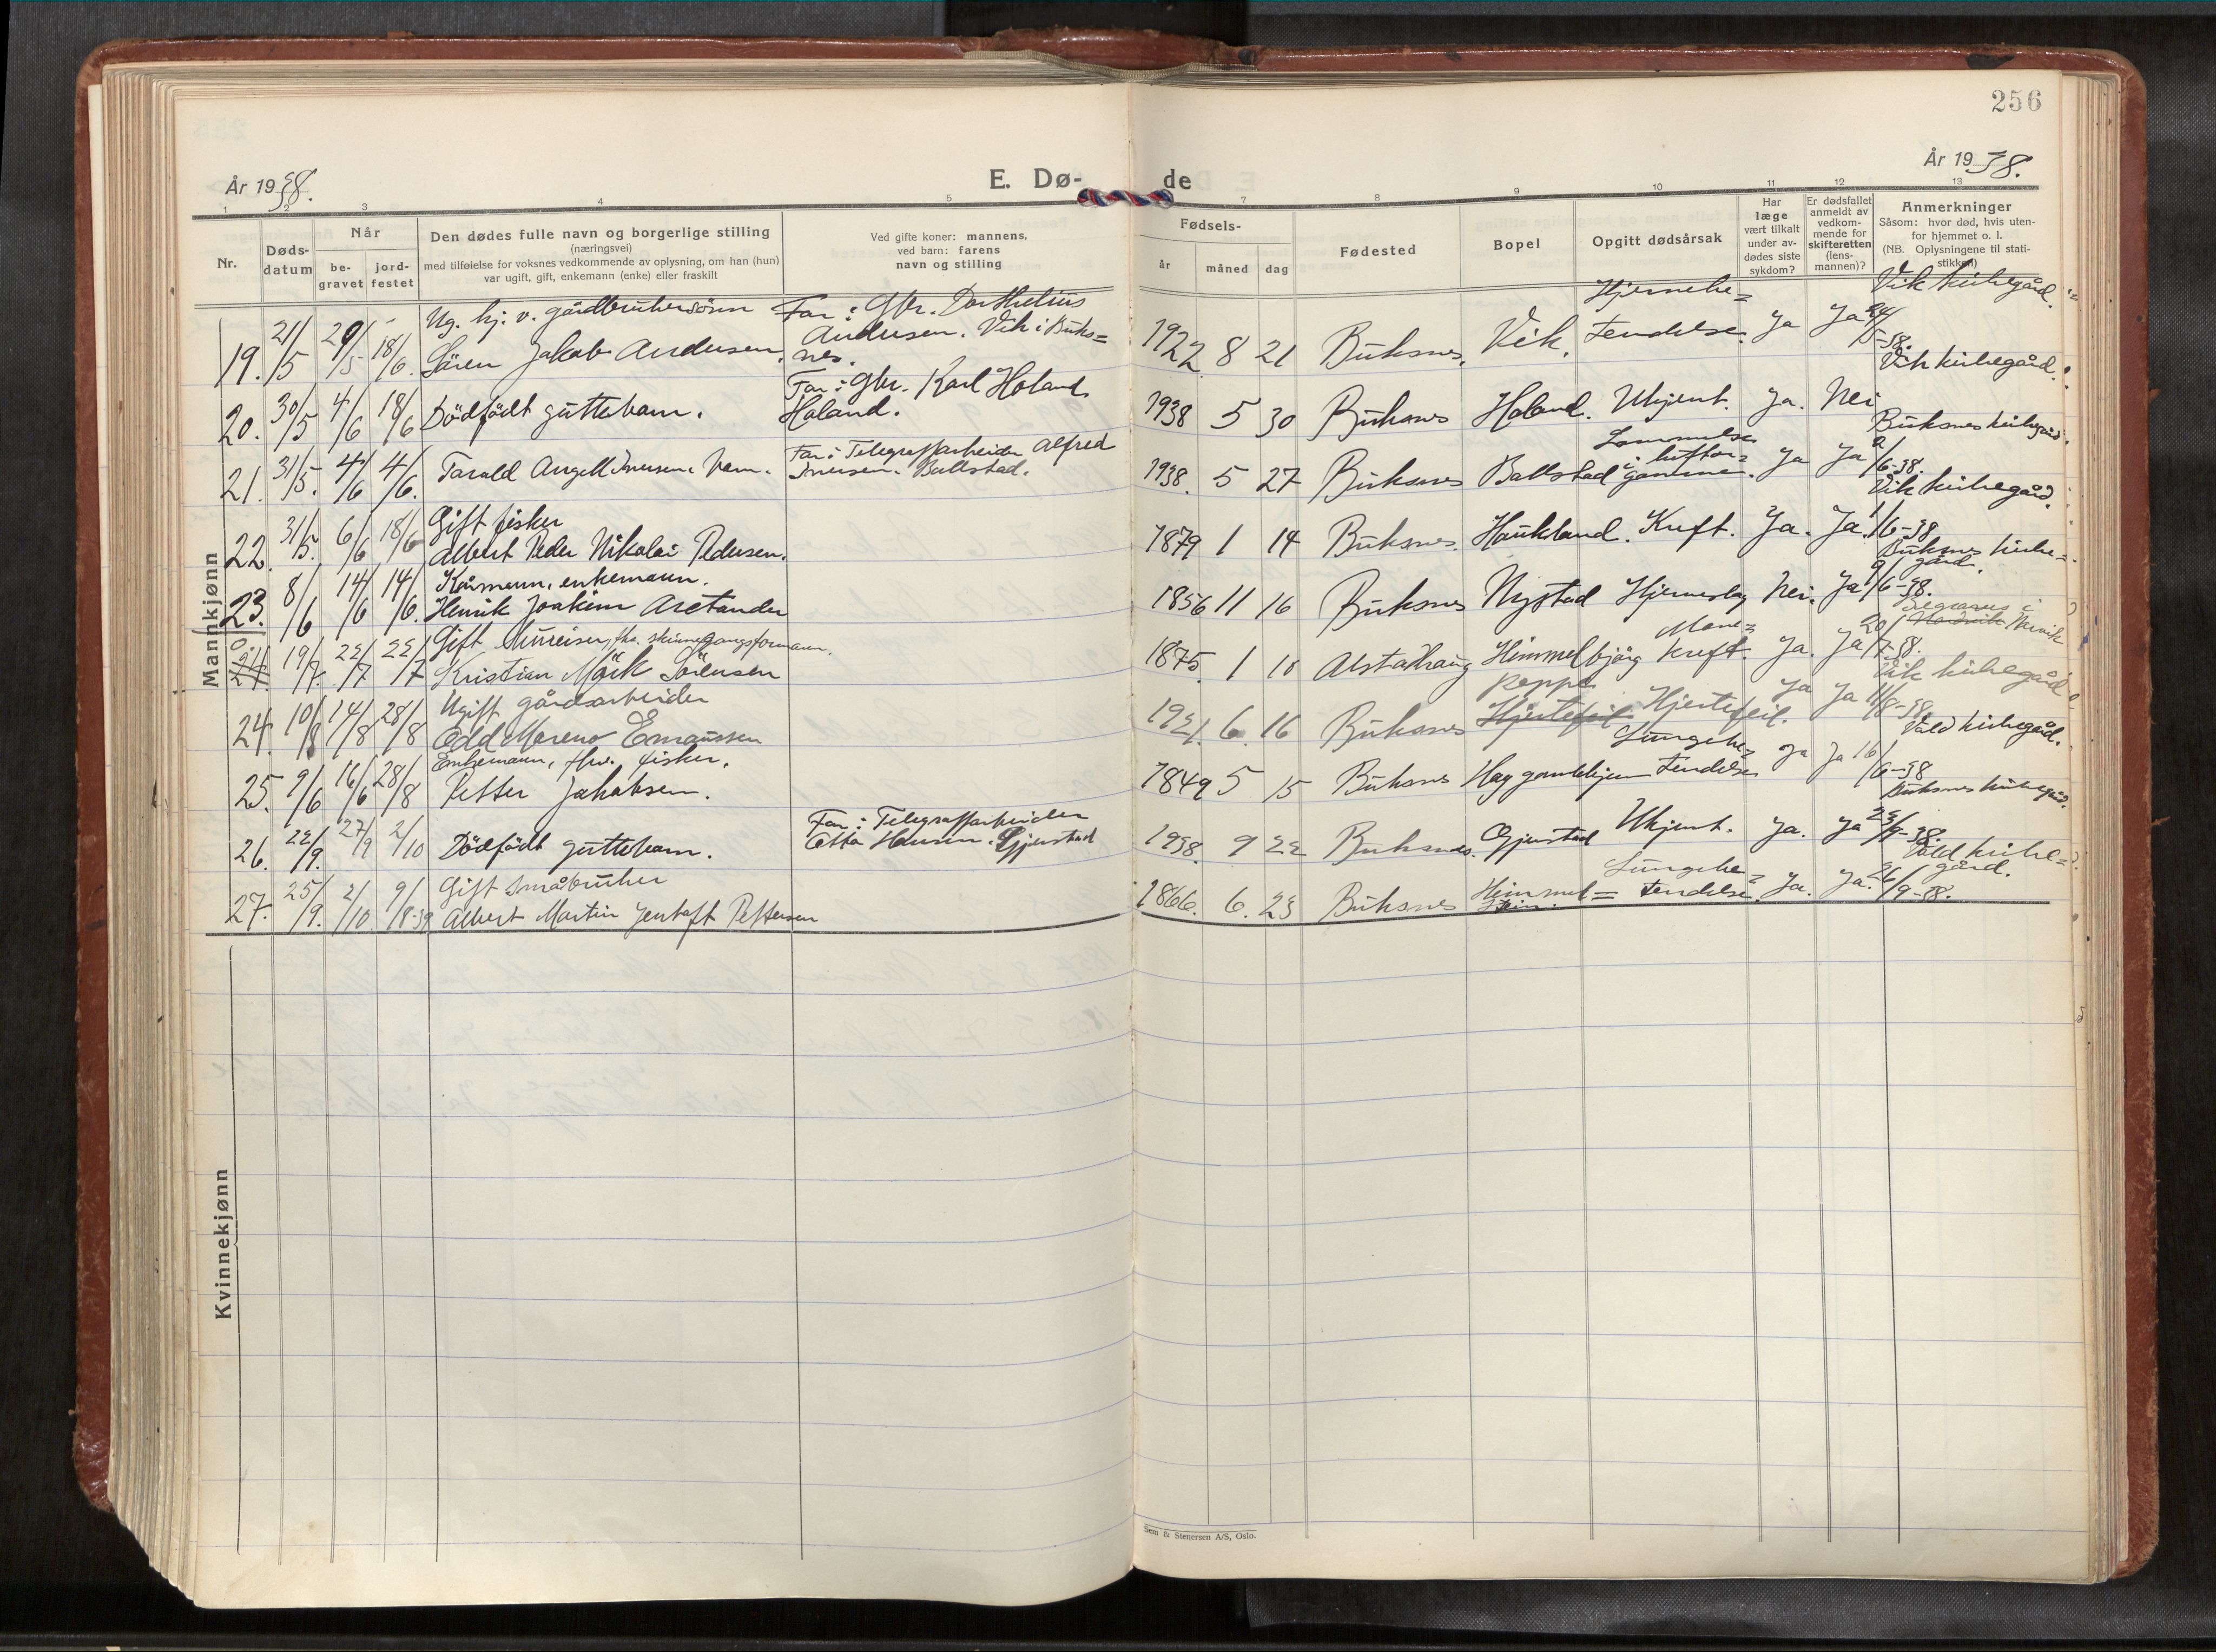 256
År 1938.
År 1938.
E. Dø-
de
1 2 3 4 5 7 8 9 10 11 12 13
Nr.
Døds-
datum
Når
be-
gravet
jord-
festet
Den dødes fulle navn og borgerlige stilling
(næringsvei)
med tilføielse for voksnes vedkommende av oplysning, om han (hun)
var ugift, gift, enkemann (enke) eller fraskilt
Ved gifte koner: mannens,
ved barn: farens
navn og stilling
Fødsels-
år måned dag
Fødested
Bopel
Opgitt dødsårsak
Har
læge
vært tilkalt
under av-
dødes siste
sykdom?
Er dødsfallet
anmeldt av
vedkom-
mende for
skifteretten
(lens-
mannen)?
Anmerkninger
Såsom: hvor død, hvis uten-
for hjemmet o. l.
(NB. Oplysningene til stati-
stikken)
Mannkjønn
Ug. hj. v. gårdbrukersönn Far: Gbr. Dorthelius Hjernebe= Vik kirkegård.
19. 21/5 29/5 18/6. Sören Jakob Andersen. Andersen. Vik i Buks= nes. 1922 8 21 Buksnes. Vik. tendelse. Ja Ja 24/5-38.
Far: Gbr. Karl Holand Vik kirkegård.
20. 30/5 4/6 18/6 Dödfödt guttebarn. Holand. 1938 5 30 Buksnes Holand. Ukjent. Ja. Nei
Far: Telegrafarbeider Alfred Lammelse Buksnes kirkegård.
21. 31/5. 4/6 4/6. Tarald Angell Iversen. barn. Iversen. Ballstad. 1938. 5 27 Buksnes Ballstad Ja Ja 2/6-38.
Gift fisker Vik kirkegård.
22. 31/5. 6/6 18/6 Albert Peder Nikolai Pedersen. 1879 1 14 Buksnes. Haukland. Kreft. Ja. Ja. 1/6-38
Kårmann, enkemann. Buksnes kirke= gård.
23. 8/6 14/6 14/6. Henrik Joakim Arctander 1856 11 16 Buksnes Nygstad Hjerneslag Nei. Ja 9/6-38.
Gift Nureiser, fhv. skinnegangsformann. Mave= Begraves i Narvik
19/7. 22/7 22/7 Kristian Mörk Sörensen 1875 1 10 Alstadhaug Himmelbjörg kreft. Ja. Ja 20/7-38.
Ugift gårdsarbeider Reppe Vik kirkegård
24. 10/8 14/8 28/8 Odd Moreno Emaussen 1921. 6. 16 Buksnes Hjertefeil Hjertefeil. Ja Ja 11/8-38
Enkemann, fhv. fisker. Lungebe= Vold kirkegård.
25. 9/6 16/6 28/8 Petter Jakobsen. 1849 5 15 Buksnes Hag gamlehjem tendelse Ja Ja 16/6-38
Far: Telegrafarbeider Buksnes kirkegård.
26. 22/9. 27/9 2/10 Dödfödt guttebarn. Otto Hansen. Gjerstad 1938. 9 22 Buksnes. Gjerstad Ukjent. Ja. Ja 23/9-38.
Gift småbruker Lungebe= Vold kirke= gård.
27. 25/9. 2/10 9/8-39 Albert Martin Jentoft Pettersen 1866. 6. 23 Buksnes Himmel= stein. tendelse. Ja. Ja. 26/9-38.
Kvinnekjønn
Sem & Stenersen A/S, Oslo.